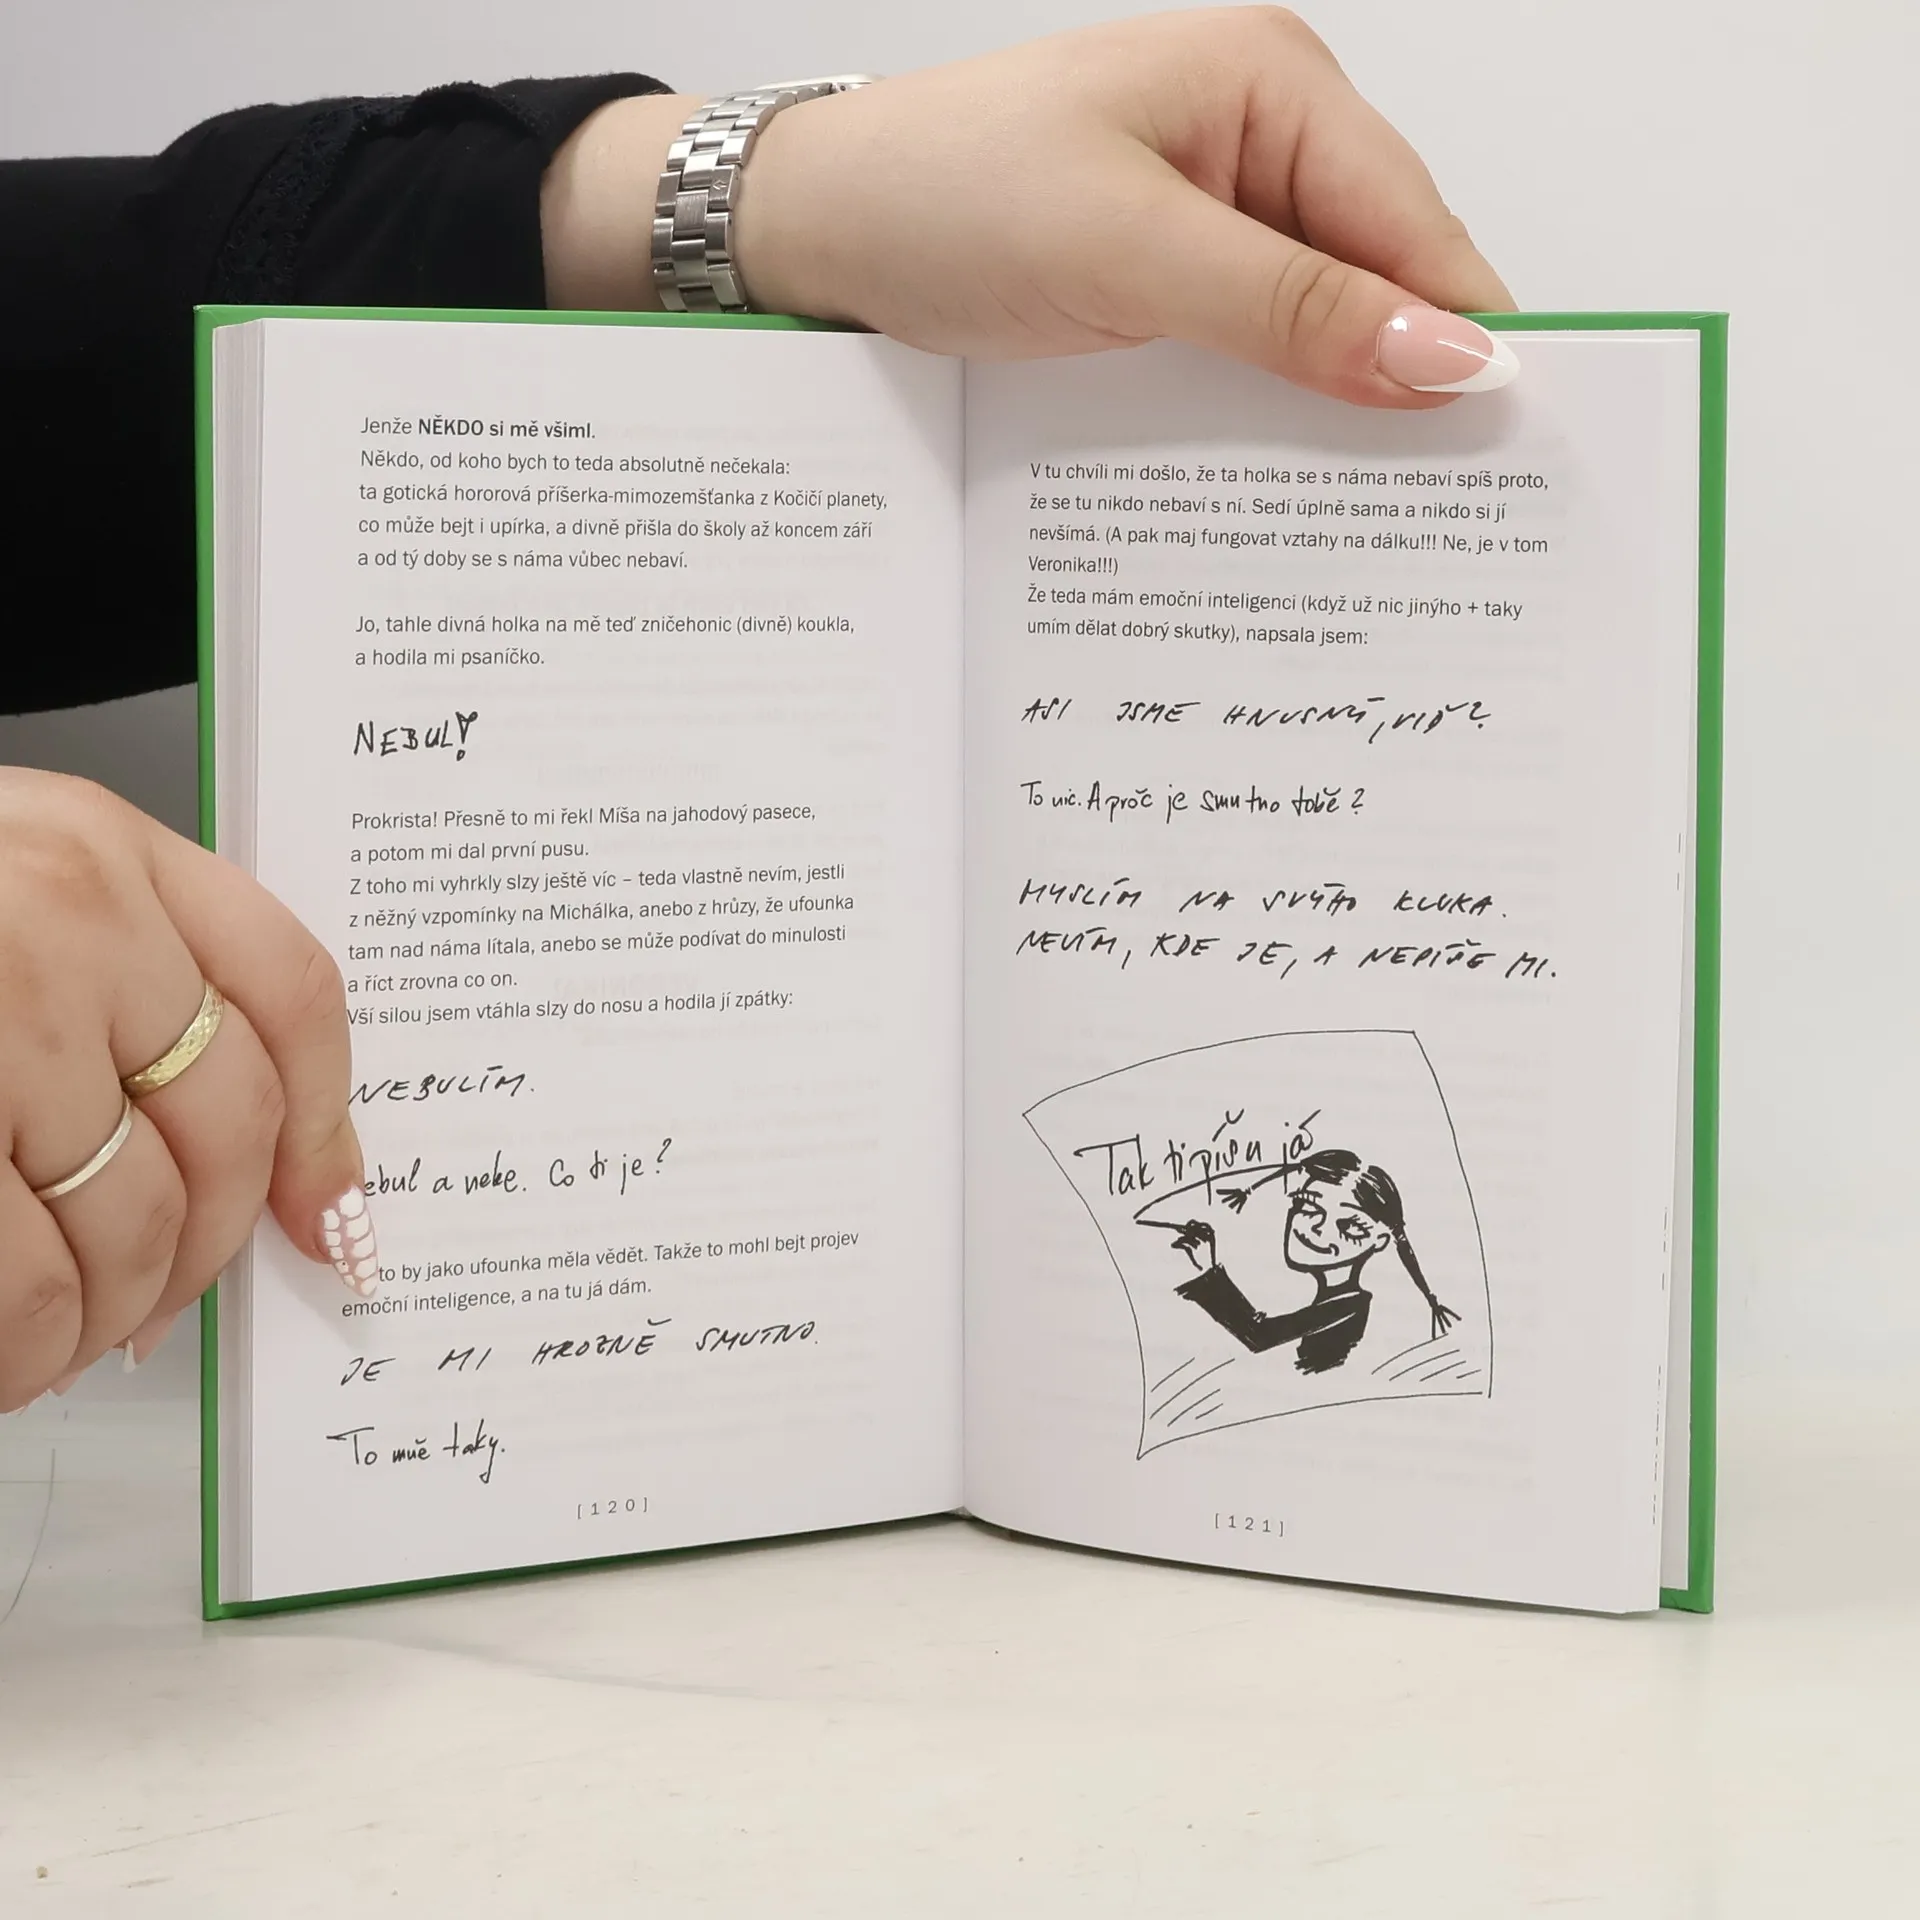 Jenže NĚKDO si mě všiml.
Někdo, od koho bych to teda absolutně nečekala:
ta gotická hororová příšerka-mimozemšťanka z Kočičí planety,
co může bejt i upírka, a divně přišla do školy až koncem září
a od tý doby se s náma vůbec nebaví.
Jo, tahle divná holka na mě teď zničehonic (divně) koukla,
a hodila mi psaníčko.
NEBUL!
Prokrista! Přesně to mi řekl Míša na jahodový pasece,
a potom mi dal první pusu.
Z toho mi vyhrkly slzy ještě víc – teda vlastně nevím, jestli
z něžný vzpomínky na Michálka, anebo z hrůzy, že ufounka
tam nad náma lítala, anebo se může podívat do minulosti
a říct zrovna co on.
Vší silou jsem vtáhla slzy do nosu a hodila jí zpátky:
NEBULÍM.
ebul a neke. Co ti je?
to by jako ufounka měla vědět. Takže to mohl bejt projev
emoční inteligence, a na tu já dám.
JE MI HROZNĚ SMUTNO.
To mně taky.
[120]
V tu chvíli mi došlo, že ta holka se s náma nebaví spíš proto,
že se tu nikdo nebaví s ní. Sedí úplně sama a nikdo si jí
nevšímá. (A pak maj fungovat vztahy na dálku!!! Ne, je v tom
Veronika!!!)
Že teda mám emoční inteligenci (když už nic jinýho + taky
umím dělat dobrý skutky), napsala jsem:
ASI JSME HNUSNÝ, VIĎ?
To nic. A proč je smutno tobě?
MYSLÍM NA SVÝHO KLUKA.
NEVÍM, KDE JE, A NEPÍŠE MI.
Tak ti píšu já
[121]